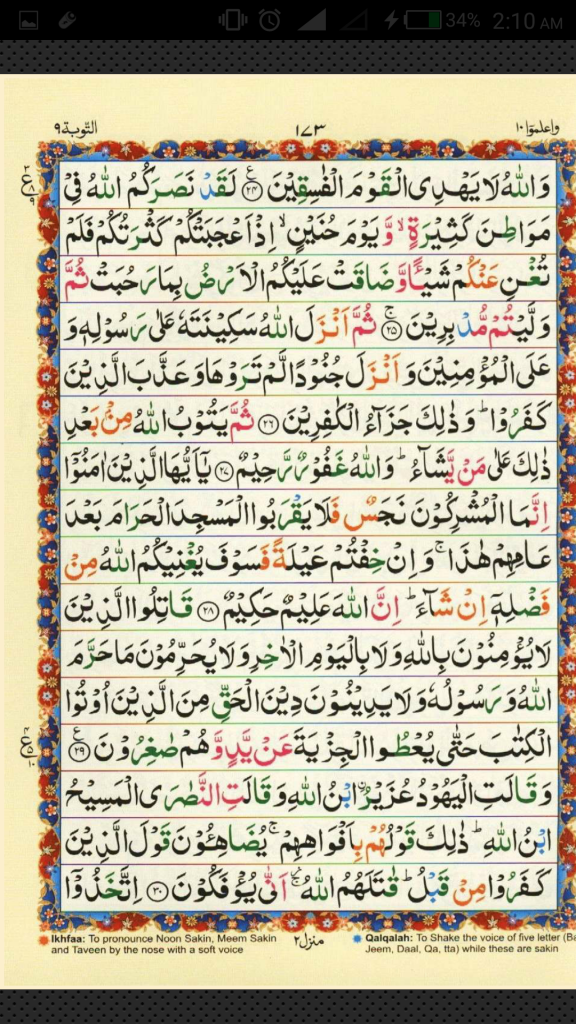 34% 2:10 AM
التوبة ٩ ١٧٣ واعلموٓا ١٠
وَاللّٰهُ لَا يَهْدِى الْقَوْمَ الْفٰسِقِيْنَ ﴿٢٤﴾ لَقَدْ نَصَرَكُمُ اللّٰهُ فِىْ
مَوَاطِنَ كَثِيْرَةٍ ۙ وَّيَوْمَ حُنَيْنٍ ۙ اِذْ اَعْجَبَتْكُمْ كَثْرَتُكُمْ فَلَمْ
تُغْنِ عَنْكُمْ شَيْـًٔا وَّضَاقَتْ عَلَيْكُمُ الْاَرْضُ بِمَا رَحُبَتْ ثُمَّ
وَلَّيْتُمْ مُّدْبِرِيْنَ ۚ ﴿٢٥﴾ ثُمَّ اَنْزَلَ اللّٰهُ سَكِيْنَتَهٗ عَلٰى رَسُوْلِهٖ وَ
عَلَى الْمُؤْمِنِيْنَ وَاَنْزَلَ جُنُوْدًا لَّمْ تَرَوْهَا وَعَذَّبَ الَّذِيْنَ
كَفَرُوْا ؕ وَذٰلِكَ جَزَآءُ الْكٰفِرِيْنَ ﴿٢٦﴾ ثُمَّ يَتُوْبُ اللّٰهُ مِنْۢ بَعْدِ
ذٰلِكَ عَلٰى مَنْ يَّشَآءُ ؕ وَاللّٰهُ غَفُوْرٌ رَّحِيْمٌ ﴿٢٧﴾ يٰۤاَيُّهَا الَّذِيْنَ اٰمَنُوْۤا
اِنَّمَا الْمُشْرِكُوْنَ نَجَسٌ فَلَا يَقْرَبُوا الْمَسْجِدَ الْحَرَامَ بَعْدَ
عَامِهِمْ هٰذَا ۚ وَاِنْ خِفْتُمْ عَيْلَةً فَسَوْفَ يُغْنِيْكُمُ اللّٰهُ مِنْ
فَضْلِهٖۤ اِنْ شَآءَ ؕ اِنَّ اللّٰهَ عَلِيْمٌ حَكِيْمٌ ﴿٢٨﴾ قَاتِلُوا الَّذِيْنَ
لَا يُؤْمِنُوْنَ بِاللّٰهِ وَلَا بِالْيَوْمِ الْاٰخِرِ وَلَا يُحَرِّمُوْنَ مَا حَرَّمَ
اللّٰهُ وَرَسُوْلُهٗ وَلَا يَدِيْنُوْنَ دِيْنَ الْحَقِّ مِنَ الَّذِيْنَ اُوْتُوا
الْكِتٰبَ حَتّٰى يُعْطُوا الْجِزْيَةَ عَنْ يَّدٍ وَّهُمْ صٰغِرُوْنَ ﴿٢٩﴾
وَقَالَتِ الْيَهُوْدُ عُزَيْرُ ۨابْنُ اللّٰهِ وَقَالَتِ النَّصٰرَى الْمَسِيْحُ
ابْنُ اللّٰهِ ؕ ذٰلِكَ قَوْلُهُمْ بِاَفْوَاهِهِمْ ۚ يُضَاهِـُٔوْنَ قَوْلَ الَّذِيْنَ
كَفَرُوْا مِنْ قَبْلُ ؕ قٰتَلَهُمُ اللّٰهُ ۚ اَنّٰى يُؤْفَكُوْنَ ﴿٣٠﴾ اِتَّخَذُوْۤا
منزل ٢
Ikhfaa: To pronounce Noon Sakin, Meem Sakin
and Taveen by the nose with a soft voice
Qalqalah: To Shake the voice of five letter (Ba
Jeem, Daal, Qa, tta) while these are sakin